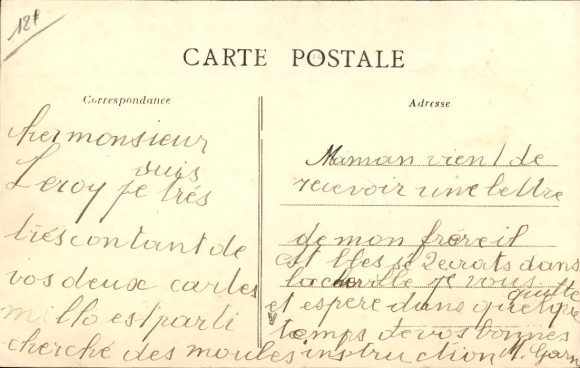 12f
CARTE POSTALE
Correspondance
cher monsieur
Leroy je suis trés
trés contant de
vos deux cartes
millo est parti
cherché des moules
Adresse
Maman vient de
recevoir une lettre
de mon fréreil
est bles se 2 endrats dans
la cheville je vous quitte
et espere dans quelque
temps de vos bonnes
instruction M. Garn